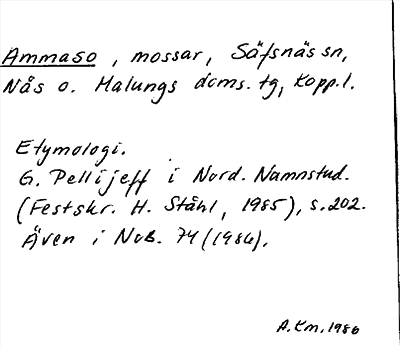 Ammaso, mossar, Säfsnäs sn,
Nås o. Malungs doms. tg, Kopp.l.
Etymologi.
G. Pellijeff i Nord. Namnstud.
(Festskr. H. Ståhl, 1985), s. 202.
Även i NoB. 74 (1986).
A.Km, 1986